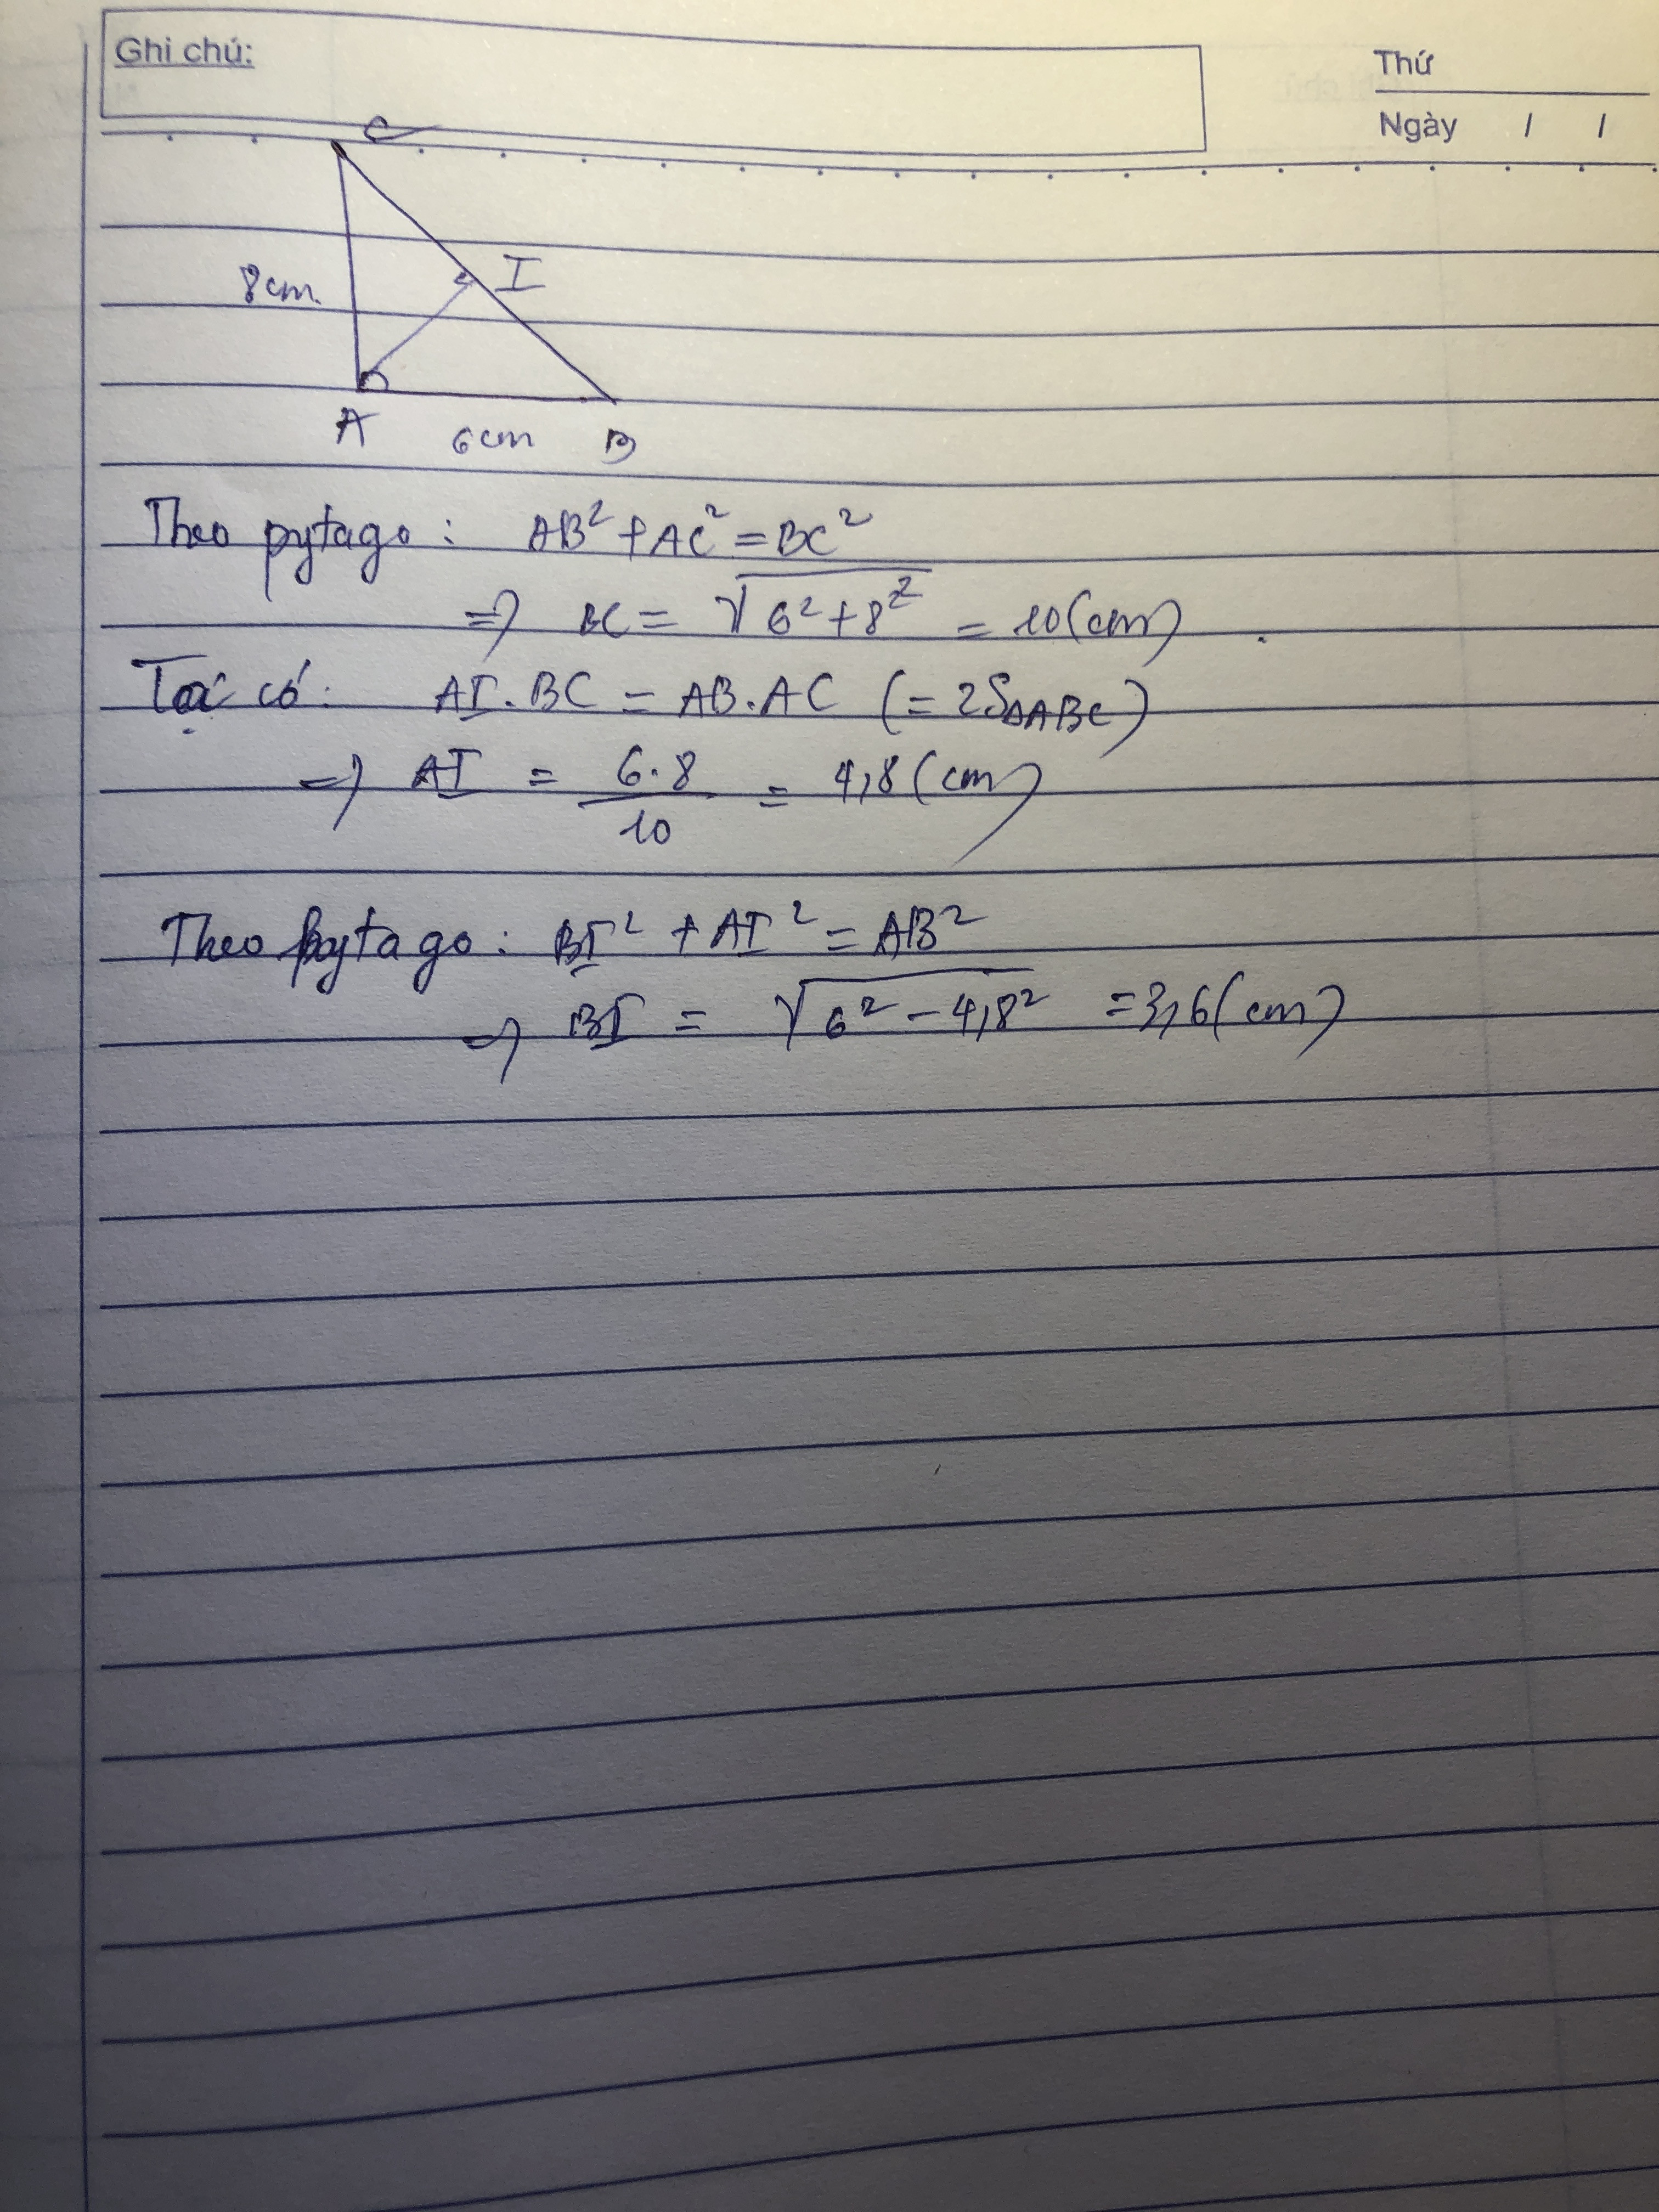 Ghi chú:
Thứ
Ngày / /
C
8cm
I
A 6cm B
Theo pytago: AB² + AC² = BC²
=> BC = √6² + 8² = 10 (cm)
có: AI . BC = AB . AC (= 2SΔABC)
=> AI = 6.8/10 = 4,8 (cm)
Theo pytago: BI² + AI² = AB²
=> BI = √6² - 4,8² = 3,6 (cm)